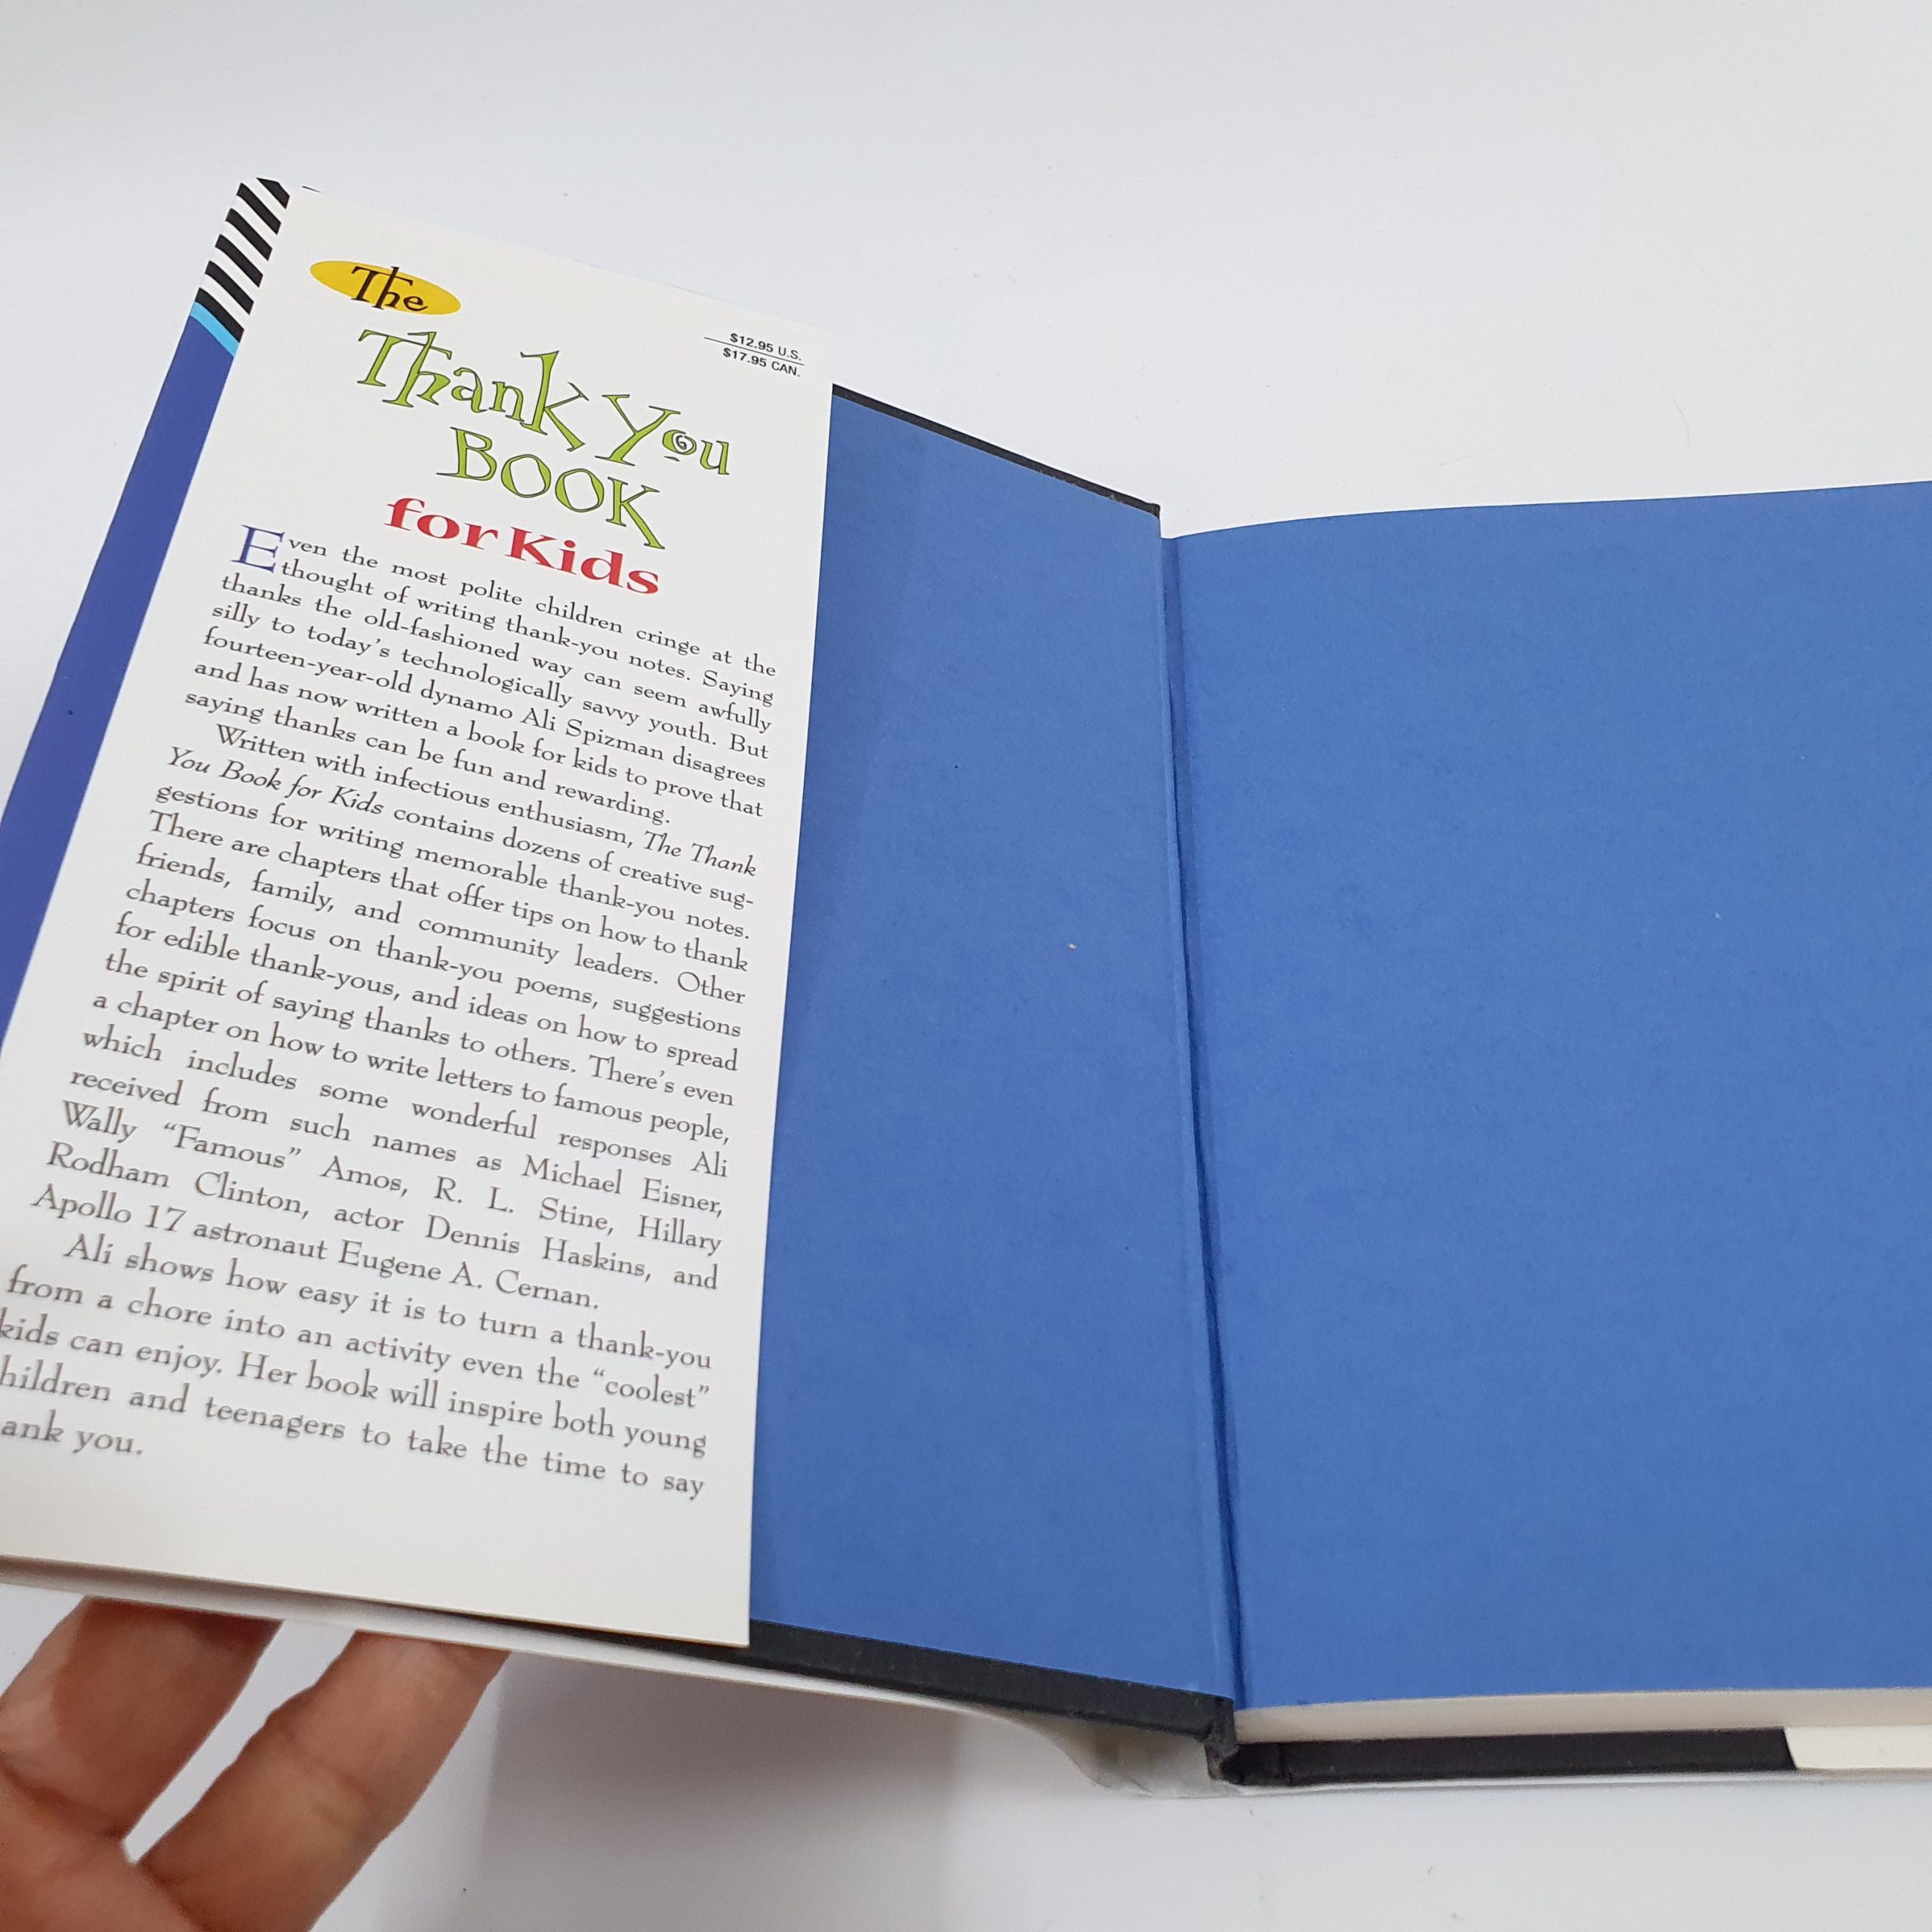 The
Thank You
BOOK
for Kids
$12.95 U.S.
$17.95 CAN.
Even the most polite children cringe at the
thought of writing thank-you notes. Saying
thanks the old-fashioned way can seem awfully
silly to today's technologically savvy youth. But
fourteen-year-old dynamo Ali Spizman disagrees
and has now written a book for kids to prove that
saying thanks can be fun and rewarding.
Written with infectious enthusiasm, The Thank
You Book for Kids contains dozens of creative sug-
gestions for writing memorable thank-you notes.
There are chapters that offer tips on how to thank
friends, family, and community leaders. Other
chapters focus on thank-you poems, suggestions
for edible thank-yous, and ideas on how to spread
the spirit of saying thanks to others. There's even
a chapter on how to write letters to famous people,
which includes some wonderful responses Ali
received from such names as Michael Eisner,
Wally “Famous” Amos, R. L. Stine, Hillary
Rodham Clinton, actor Dennis Haskins, and
Apollo 17 astronaut Eugene A. Cernan.
Ali shows how easy it is to turn a thank-you
from a chore into an activity even the “coolest”
kids can enjoy. Her book will inspire both young
hildren and teenagers to take the time to say
ank you.